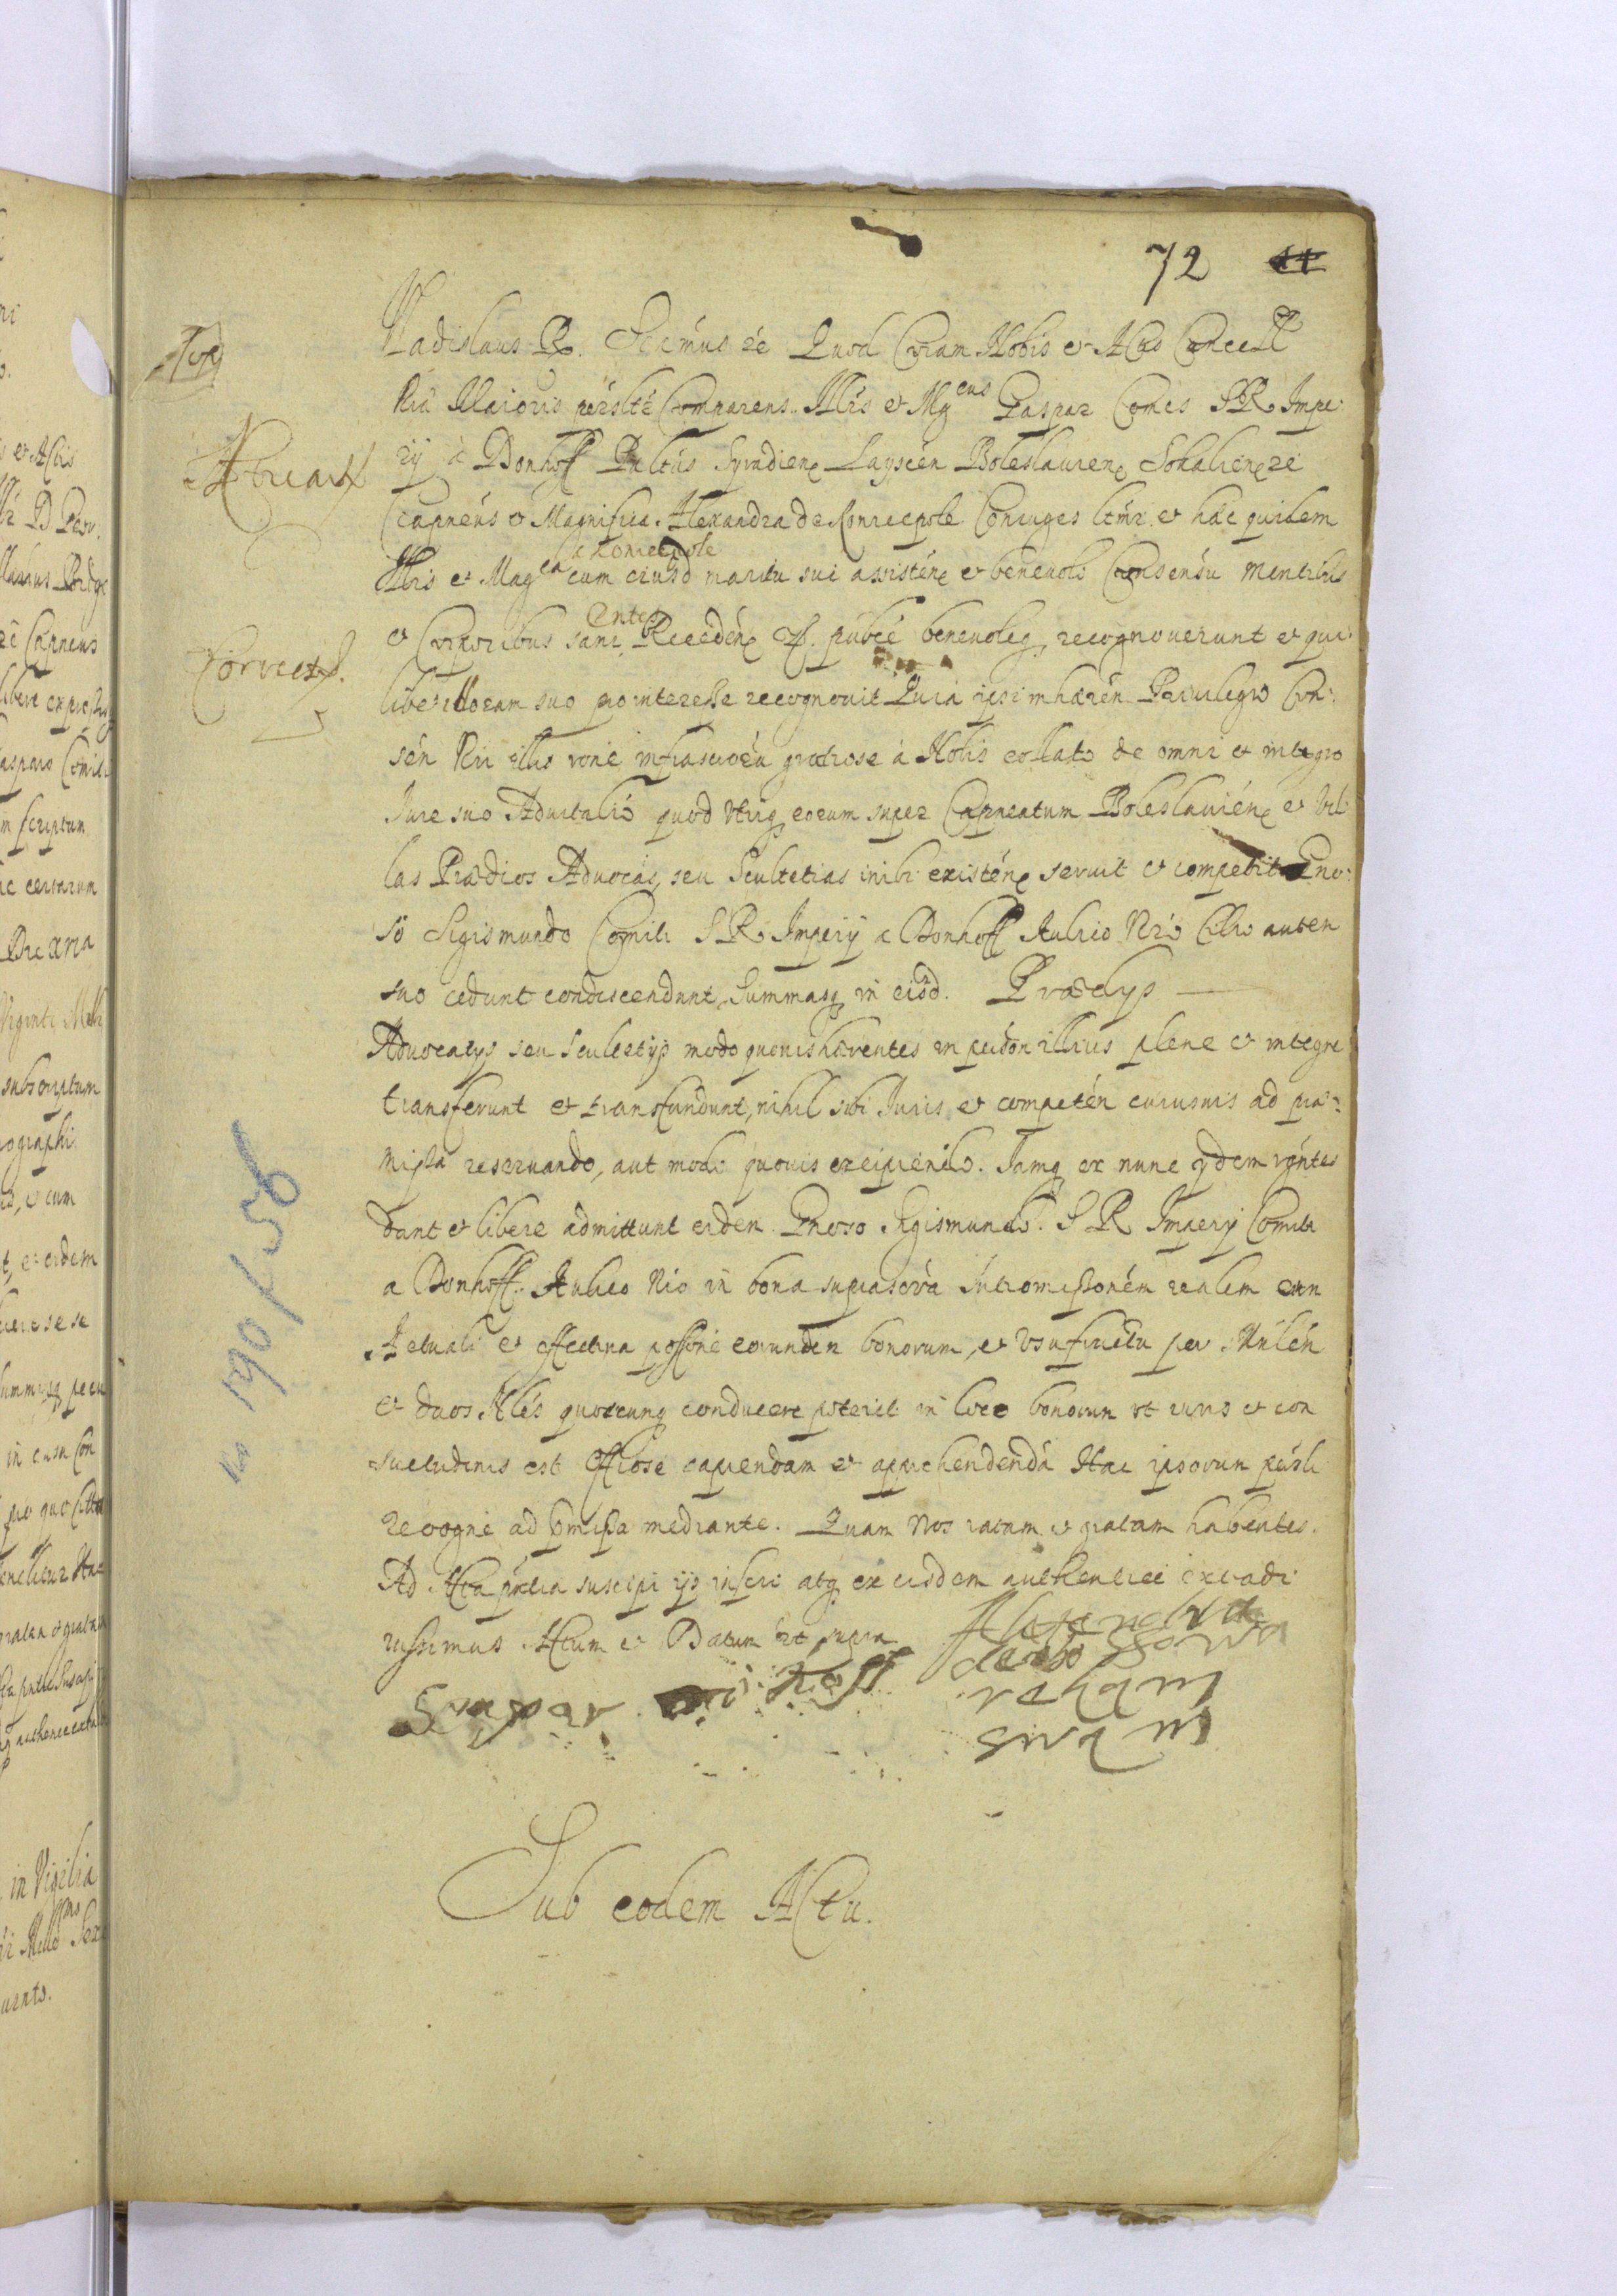 72 44
Vladislaus Rx. Scimus &c Quod Coram Nobis et Actis Cancell
Nrã Maioris persltẽ Comparens. Illris et Mgcus Gaspar Comes S R. Impe:
rij a Donhoff Paltũs Syradienẹ Laysceń Boleslauienẹ Sokaliene &c
Capneus et Magnifica Alexandra de Koniecpole Coniuges ltmi et hac quidem
a Koniecpole
Illris et Magca cum eiusd mariti sui assistenẹ et beneuolo Consensu mentibus
entes
et Corporibus sani Recedenẹ &. publcé beneuoleq recognouerunt et qui:
libet illorum suo pro interesse recognouit Quia ipsi inhæreń Priuilegio Con:
seń Nri illis rone infrascrorũ gratiose a Nobis collato de omni et integro
Iure suo Aduitalio quod Utriq eorum super Capneatum Boleslauienẹ et Vil
las Prædios Aduocas, seu Scultetias inibi existenẹ seruit et competit Gno:
so Sigismundo Comiti S R. Imperij a Donhoff Aulico Nro filio autem
suo cedunt condescendunt, Summasq in eisd. Prædijs
Aduocatijs seu Scultetijs modo quouis hærentes in person illius plene et integre
transferunt et transfundunt, nihil sibi Iuris et competeń cuiusuis ad præ:
missa reseruando, aut modo quouis excipiendo. Iamq ex nunc ijdem rgntes
dant et libere admittunt eidem Gneroso Sigismundo S R Imperij Comiti
a Donhoff. Aulico Nro in bona suprascrta Intromissionem realem cum
Actuali et effectiua possone eorundem bonorum, et Vsufructu per Mnleń
et duos Nles quoscunq conducere poterit in loco bonorum vt iuris et con
suetudinis est Officiose capiendam et apprehendendã Hac ipsorum persli
recogne ad pmissa mediante. Quam Nos ratam et gratam habentes.
Ad Acta pntia suscipi ijs inseri atq ex eisdem authentice extradi
iussimus Actum et Datum vt supra
Alexandra
denhoffowa
rękam
swam
Gaspar Denhoff
Sub eodem Actu.
Correcta.
No 190/56